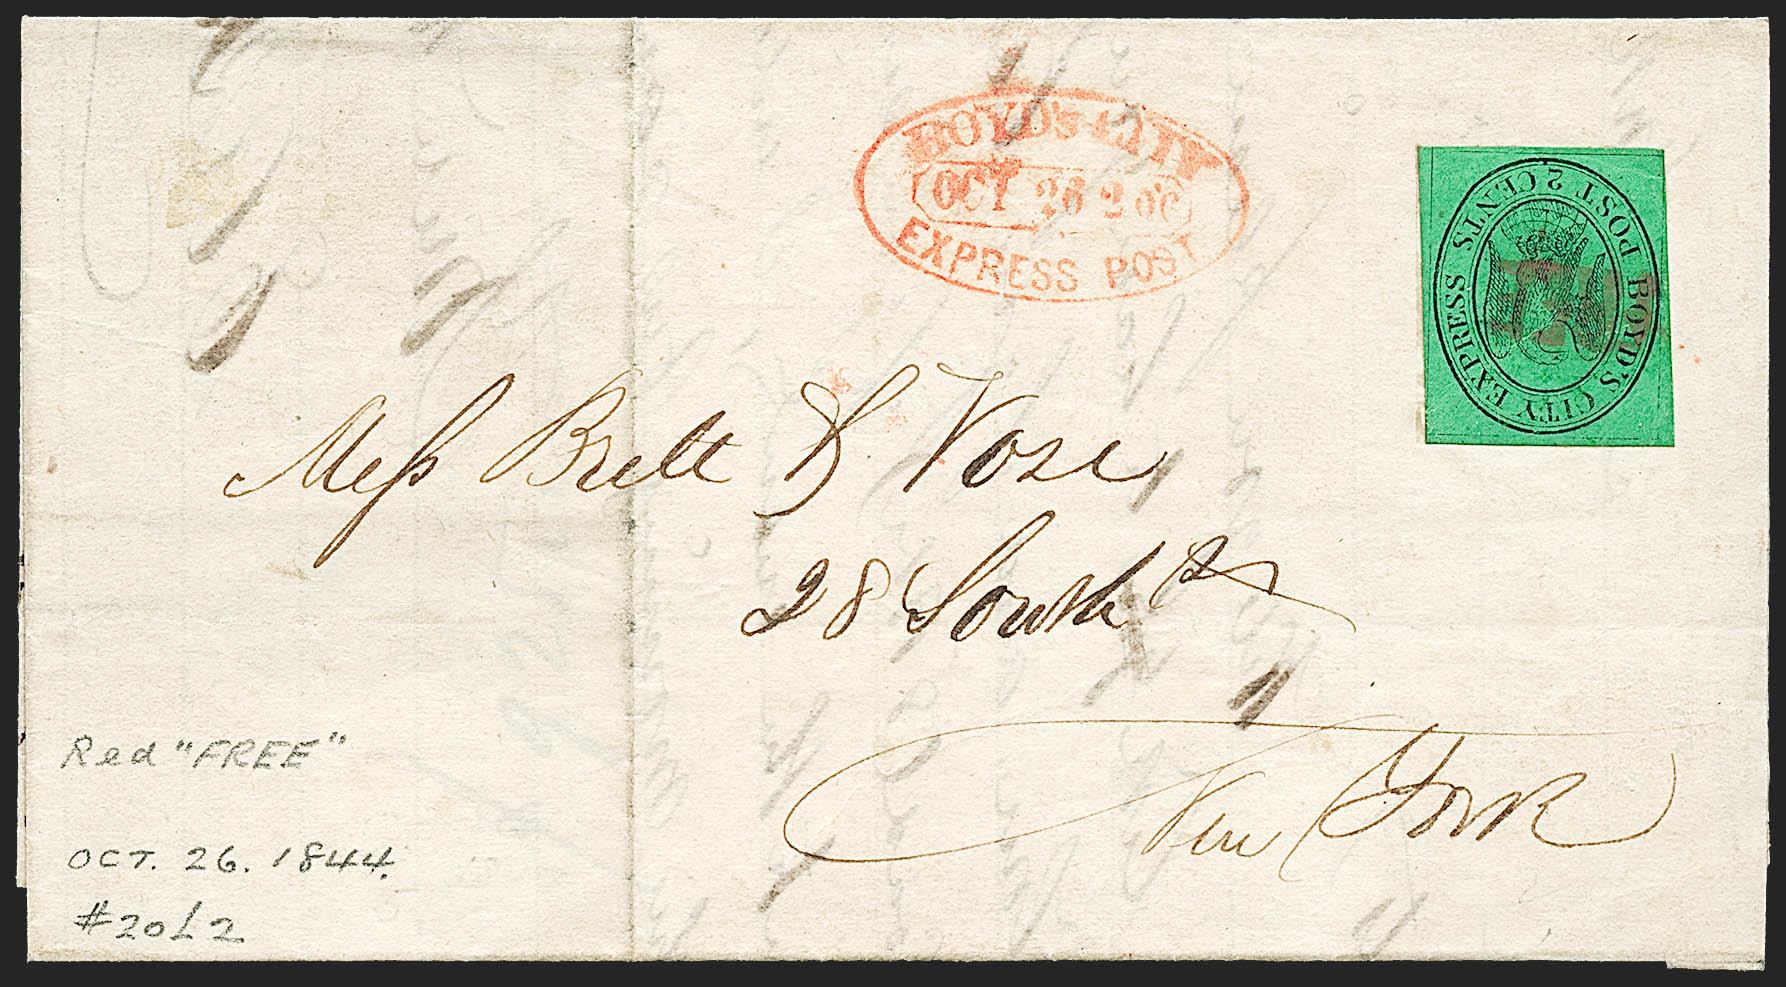 BOYD'S CITY
OCT 26 2 OC
EXPRESS POST
BOYD'S CITY EXPRESS POST 2 CENTS
Mess Brett & Vose
28 South St
New York
Red "FREE"
OCT. 26. 1844.
#20L2